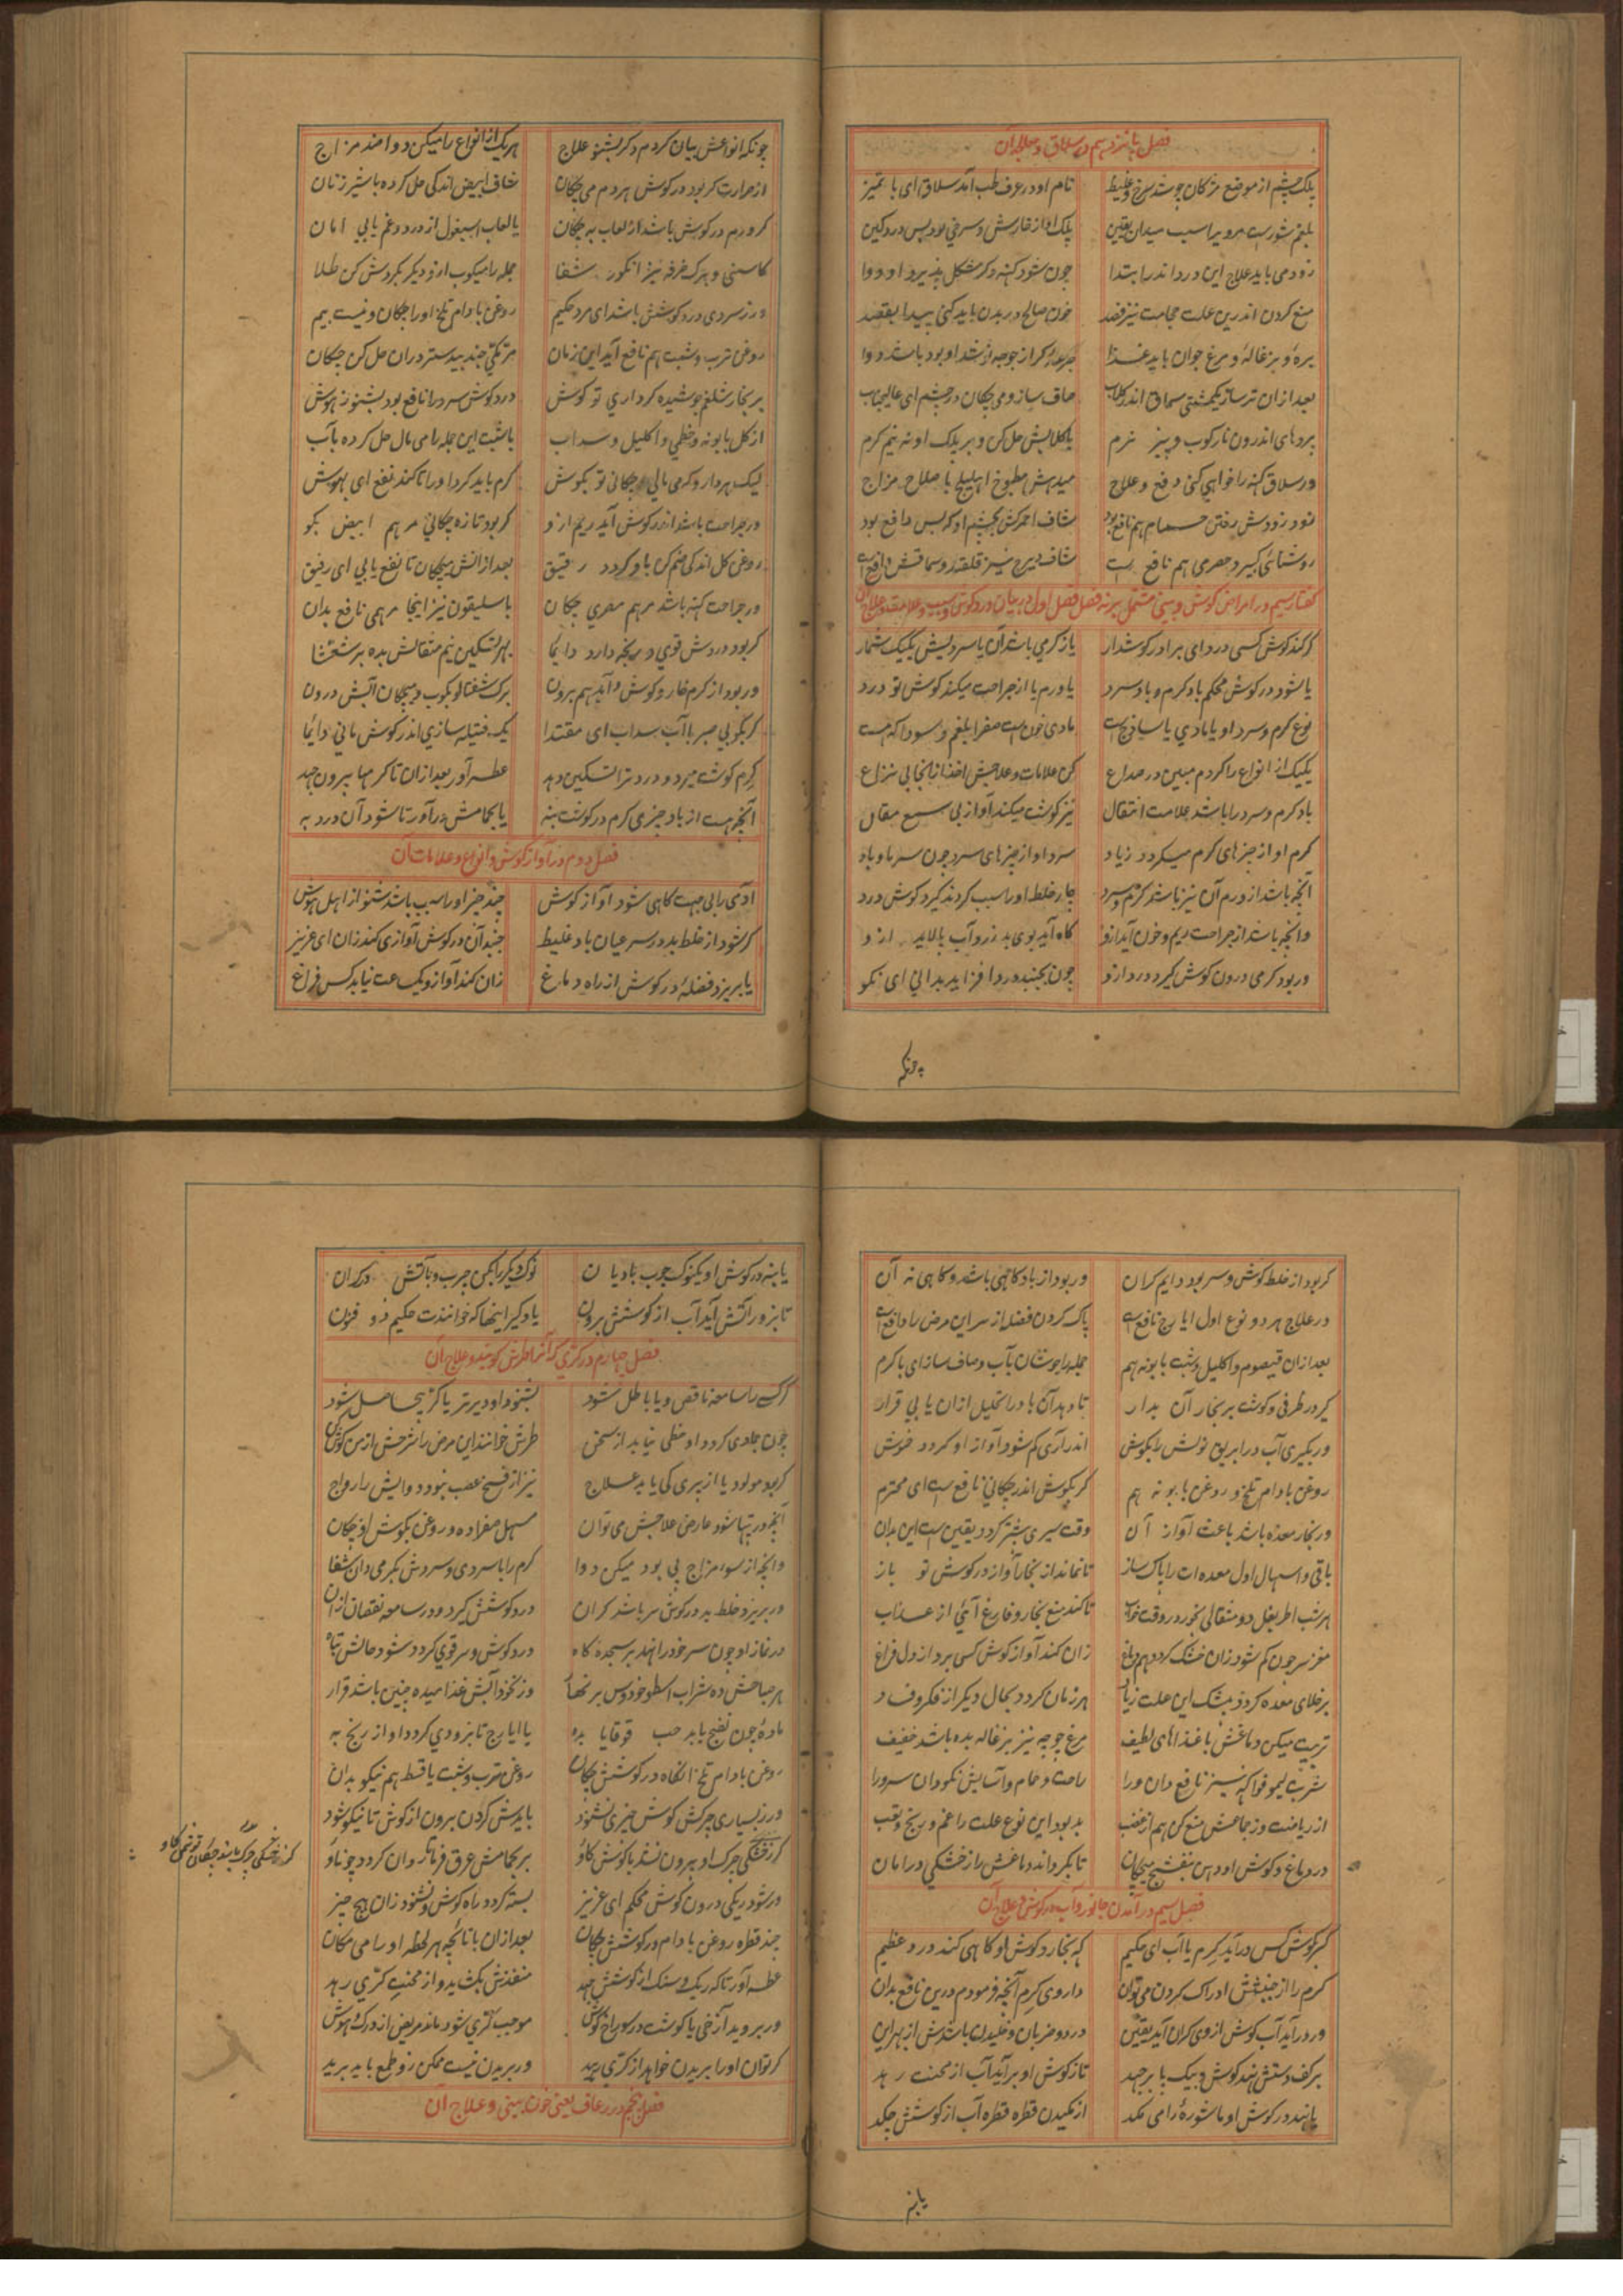 فصل پانزدهم در سلاق و علاج آن
پلک چشم از موضع مژکان چو شد سرخ و غلیظ نام او در عرف طب آمد سلاق ای با تمیز
بلغم شورست مر ویرا سبب میدان یقین پلک او از خارش و سرخی بود پس دردکین
زود می باید علاج این درد اندر ابتدا چون شود کهنه دکر مشکل پذیرد او دوا
منع کردن اندرین علت حجامت نیز فصد خون صالح در بدن باید کنی پیدا بقصد
بره و بزغاله و مرغ جوان باید غذا
بعد ازان تر ساز یکمشتی سماق اندر کلاب صاف ساز و می چکان در چشم ای عالیجناب
پردهای اندرون نار کوب و پیز نرم با کلابش حل کن و بر پلک او نه نیم کرم
ور سلاق کهنه را خواهی کنی دفع و علاج میدهش مطبوخ اهلیلج با صلاح مزاج
زود زودش رفتن حمام هم نافع بود شاف احمر کش بچشم او که بس دافع بود
روشنائی کبیر و حصرمی هم نافع است
کفتار سیم در امراض کوش و بینی مشتمل بر نه فصل فصل اول در بیان درد کوش و سبب و علامت و علاج آن
کر کند کوش کسی درد ای برادر کوشدار یا ز کرمی باشد آن یا سردیش یکیک شمار
یا شود در کوش محکم باد کرم و باد سرد یا ورم یا از جراحت میکند کوش تو درد
نوع کرم و سرد او یا مادی یا ساذج است مادی خون است صفرا بلغم و سودا که هست
یکیک از انواع را کردم مبین در صداع کن علامات و علاجش اخذ ازانجا بی نزاع
باد کرم و سرد را باشد علامت انتقال نیز کوشت میکند آواز بی سمع مقال
کرم او از چیزهای کرم میکردد زیاد سرد او از چیزهای سرد چون سرما و باد
آنچه باشد از ورم آن نیز باشد کرم و سرد چار خلط او را سبب کردند کیرد کوش درد
وانچه باشد از جراحت ریم و خون آید ازو کاه آید بوی بد زرد آب پالاید ازو
ور بود کرمی درون کوش کیرد درد ازو چون بجنبد درد افزاید بدانی ای نکو
چونکه
چونکه انواعش بیان کردم دکر بشنو علاج هر یک از انواع را میکن دوا ضد مزاج
از حرارت کر بود در کوش هر دم می چکان شاف ابیض اندکی حل کرده با شیر زنان
کر ورم در کوش باشد از لعاب به چکان یا لعاب اسپغول از درد و غم یابی امان
کاسنی و برک خرفه نیز انکور شفا جمله را میکوب ازو دیکر بکردش کن طلا
ور ز سردی درد کوشش باشد ای مرد حکیم روغن بادام تلخ او را چکان و نیست بیم
روغن ترب و شبت هم نافع آید این زمان جند بیدستر دران حل کن چکان
بر بخار شلغم جوشیده کر داری تو کوش درد کوش سرد را نافع بود بشنو ز هوش
از کل بابونه و خطمی و اکلیل و سداب با شبت این جمله را می مال حل کرده بآب
کرم باید کرد او را تا کند نفع ای بهوش
ور جراحت باشد اندر کوش آید ریم ازو کر بود تازه چکانی مرهم ابیض بکو
روغن کل اندکی ضم کن باو کردد رقیق بعد ازانش میچکان تا نفع یابی ای رفیق
ور جراحت کهنه باشد مرهم مصری چکان باسلیقون نیز اینجا مرهمی نافع بدان
کر بود دردش قوی و رنجه دارد دایما بهر تسکین نیم مثقالش بده برشعثا
ور بود از کرم خار و کوش و آید هم برون برک شفتالو بکوب و میچکان آبش درون
کر بکوبی صبر با آب سداب ای مقتدا یک فتیله سازی اندر کوش مانی دایما
کرم کوشت میرد و درد ترا تسکین دهد عطسه آور بعد ازان تا کرمها بیرون جهد
آنچه هست از باد چیزی کرم در کوشت بنه یا بحمامش درآور تا شود آن درد به
فصل دوم در آواز کوش و انواع و علامات آن
آدمی را بی جهت کاهی شود آواز کوش چند چیز او را سبب باشد شنو از اهل هوش
کر شود از خلط بد در سر عیان باد غلیظ جنبد آن در کوش آوازی کند زان ای عزیز
یا بریزد فضله در کوش از راه دماغ زان کند آواز و یکساعت نیابد کس فراغ
کر بود از خلط کوش و سر بود دایم کران ور بود از باد کاهی باشد و کاهی نه آن
در علاج هر دو نوع اول ایارج نافع است پاک کردن فضله از سر این مرض را دافع است
بعد ازان قیصوم و اکلیل و شبت بابونه هم جمله را جوشان بآب و صاف ساز ای با کرم
کیر در ظرفی و کوشت بر بخار آن بدار تا دهد آن باد را تحلیل ازان یابی قرار
ور بکیری آب در ابریق نولش را بکوش اندر آری کم شود آواز او کردد خموش
روغن بادام تلخ و روغن بابونه هم کر بکوش اندر چکانی نافع است ای محترم
ور بخار معده باشد باعث آواز آن وقت سیری بیشتر کردد یقین است این بدان
باقی و اسهال اول معده ات را پاک ساز تا نماند از بخار آواز در کوش تو باز
هر شب اطریفل دو مثقالی بخور در وقت خواب تا کند منع بخار و فارغ آیی از عذاب
مغز سر چون کم شود زان خشک کردد هم دماغ زان کند آواز کوش کس برد از دل فراغ
بر خلای معده کردد بیشک این علت زیاد هر زمان کردد بحال دیکر از فکر و فساد
تربیت میکن دماغش با غذاهای لطیف مرغ چوجه نیز بزغاله بده باشد خفیف
شربت لیمو فواکه نیز نافع دان ورا راحت و حمام و آسایش نکو دان سرورا
از ریاضت وز جماعش منع کن هم از غضب بد بود این نوع علت را غم و رنج و تعب
در دماغ و کوش او دهن بنفشج میچکان تا بکرداند دماغش را ز خشکی در امان
فصل سیم در آمدن جانور و آب در کوش و علاج آن
کر بکوش کس درآید کرم یا آب ای حکیم که بخارد کوش او کاهی کند درد عظیم
کرم را از جنبشش ادراک کردن می توان داروی کرم آنچه فرمودم درین نافع بدان
ور درآید آب کوش از وی کران آید یقین درد و ضربان و خلیدن باشدش از بهر این
بر کف دستش نهد کوش و بیک پا برجهد تا ز کوش او برآید آب از محنت رهد
یا نهد در کوش او ماشوره را می مکد از مکیدن قطره قطره آب از کوشش چکد
یا بنه
یا بنه در کوش او یکنوک چوب بادیان نوک دیکر را بکن چرب و بآتش در کران
تا بزور آتش آید آب از کوشش برون یاد کیر اینها که خوانندت حکیم ذو فنون
فصل چهارم در کری که آنرا طرش کویند و علاج آن
هر کسی را سامعه ناقص و یا باطل شود نشنود او دیرتر یا کر بجا حاصل شود
طرش خوانند این مرض را شرحش از من کوش
کر بود مولود یا از پیری کی یابد علاج نیز از فسخ عصب نبود دوایش را رواج
آنچه در تبها شود عارض علاجش می توان مسهل صفرا ده و روغن بکوش او چکان
وانچه از سوء مزاجی بود میکن دوا کرم را با سردی و سردش بکرمی دان شفا
ور بریزد خلط بد در کوش سر باشد کران درد کوشش کیرد و در سامعه نقصان ازان
در نماز او چون سر خود را نهد بر سجده کاه درد کوش و سر قوی کردد شود حالش تباه
هر صباحش ده شراب اسطوخودوس وز نخود آبش غذا میده چنین باشد قرار
ماده چون نضج یابد حب قوقایا بده یا ایارج تا بزودی کردد او از رنج به
روغن بادام تلخ آنکاه در کوشش چکان روغن ترب و شبت یا قسط هم نیکو بدان
ور ز بسیاری چرکش کوش چیزی نشنود بایدش کردن برون از کوش تا نیکو شود
کر ز خشکی چرک او بیرون نشد
ور شود ریکی درون کوش محکم ای عزیز بسته کردد راه کوش و نشنود زان هیچ چیز
چند قطره روغن بادام در کوشش چکان
عطسه آور تا که ریک و سنک از کوشش جهد منفذش بکشاید و از محنت کری رهد
ور بروید آزخی یا کوشت در سوراخ کوش موجب کری شود ماند مریض از درک و هوش
کر توان او را بریدن خواهد از کری رهید ور بریدن نیست ممکن زو طمع باید برید
فصل پنجم در رعاف یعنی خون بینی و علاج آن